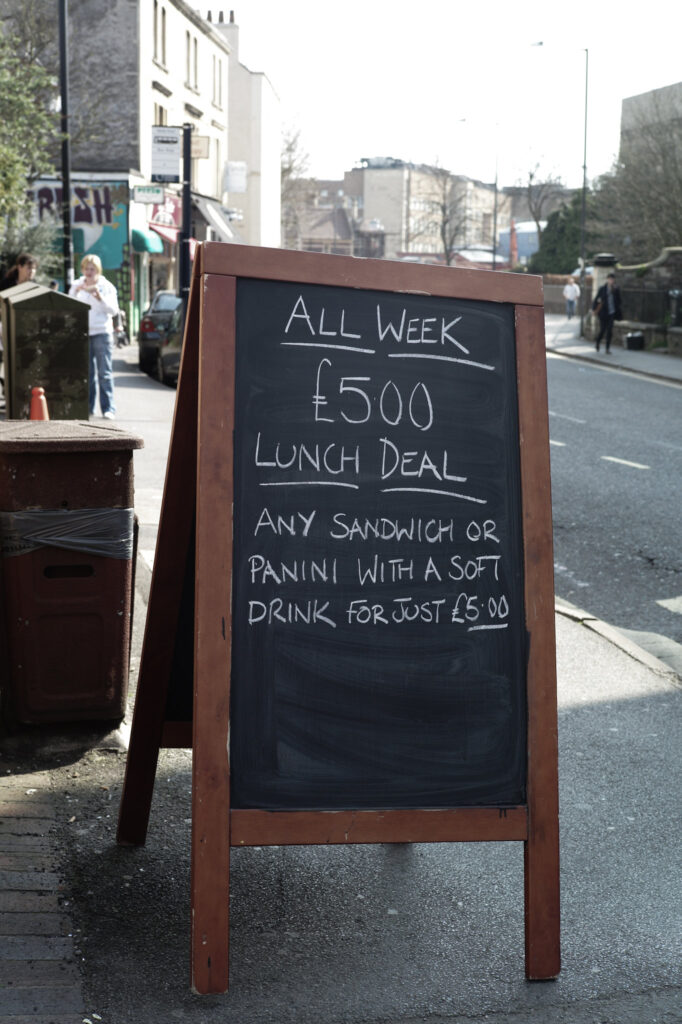 ALL WEEK
£5·00
LUNCH DEAL
ANY SANDWICH OR
PANINI WITH A SOFT
DRINK FOR JUST £5·00